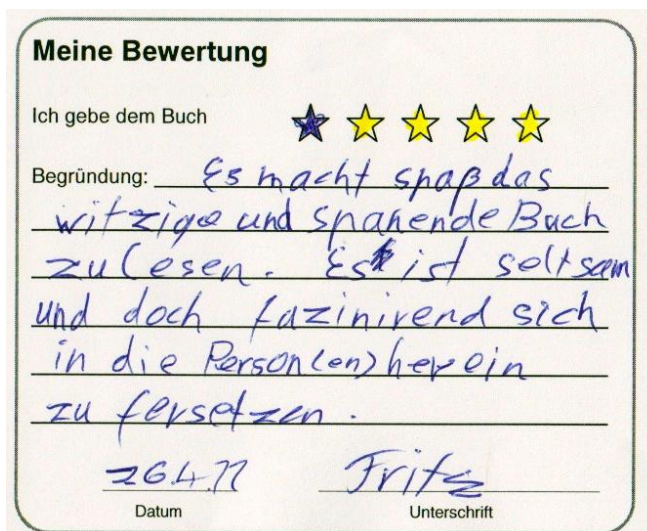 Meine Bewertung
Ich gebe dem Buch
Begründung: Es macht spaß das
witzige und spanende Buch
zu lesen. Es ist seltsam
und doch fazinirend sich
in die Person(en) herein
zu fersetzen.
26.4.11 Fritz
Datum Unterschrift